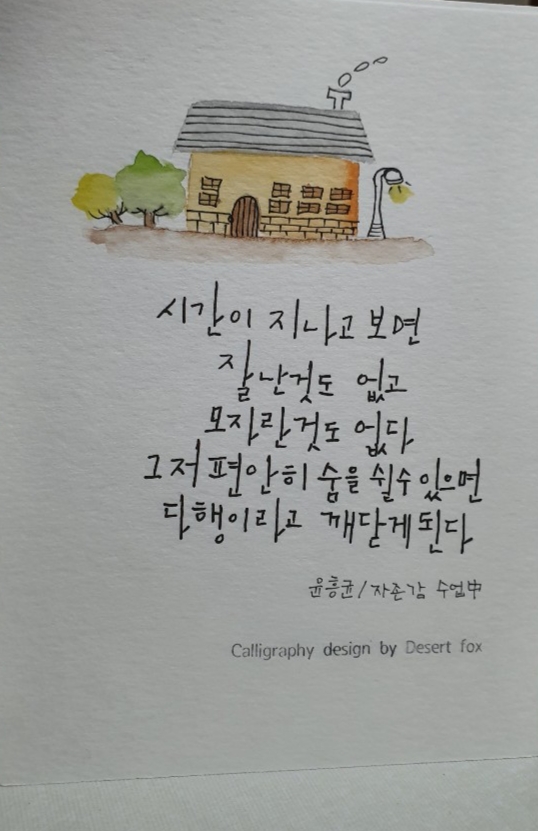 시간이 지나고 보면
잘난것도 없고
모자란것도 없다
그저 편안히 숨을 쉴수 있으면
다행이라고 깨닫게된다
윤홍균/자존감 수업中
Calligraphy design by Desert fox